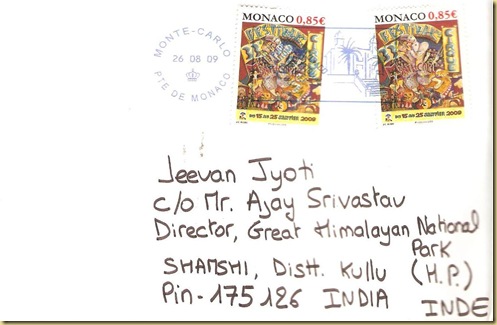 MONACO 0,85€
MONACO 0,85€
MONTE-CARLO
26 08 09
PTE DE MONACO
DU 15 AU 25 JANVIER 2009
DU 15 AU 25 JANVIER 2009
Jeevan Jyoti
c/o Mr. Ajay Srivastav
Director, Great Himalayan National
Park
SHAMSHI, Distt. Kullu (H.P.)
Pin-175126 INDIA INDE